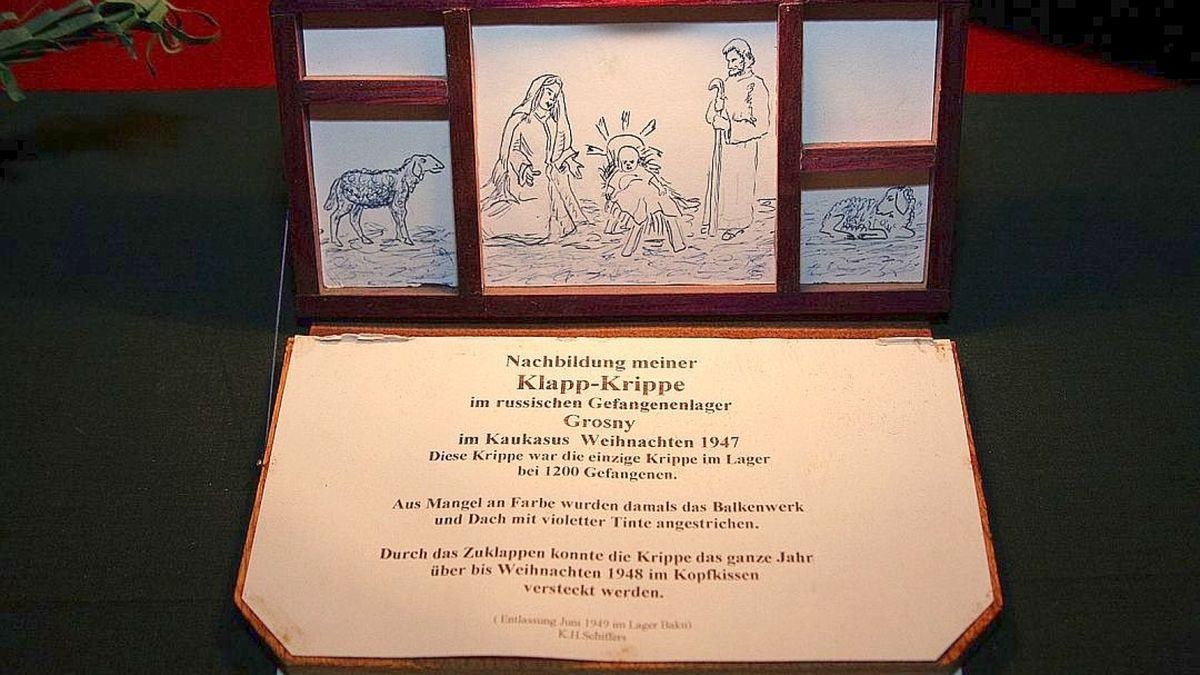 Nachbildung meiner
Klapp-Krippe
im russischen Gefangenenlager
Grosny
im Kaukasus Weihnachten 1947
Diese Krippe war die einzige Krippe im Lager
bei 1200 Gefangenen.
Aus Mangel an Farbe wurden damals das Balkenwerk
und Dach mit violetter Tinte angestrichen.
Durch das Zuklappen konnte die Krippe das ganze Jahr
über bis Weihnachten 1948 im Kopfkissen
versteckt werden.
( Entlassung Juni 1949 im Lager Baku)
K.H.Schiffers